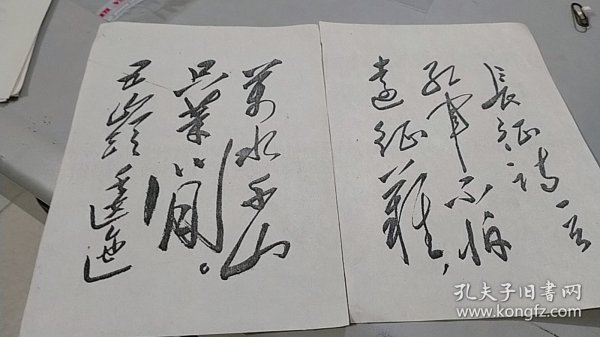 長征詩一首
紅軍不怕
遠征難，
萬水千山
只等閒。
五嶺逶迤
孔夫子旧书网
WWW.KONGFZ.COM